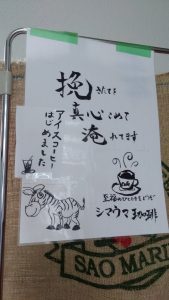 挽きたてを
真心こめて
淹れてます
アイスコーヒー
はじめました
至福のひとときをどうぞ
シマウマ珈琲
SAO MARI